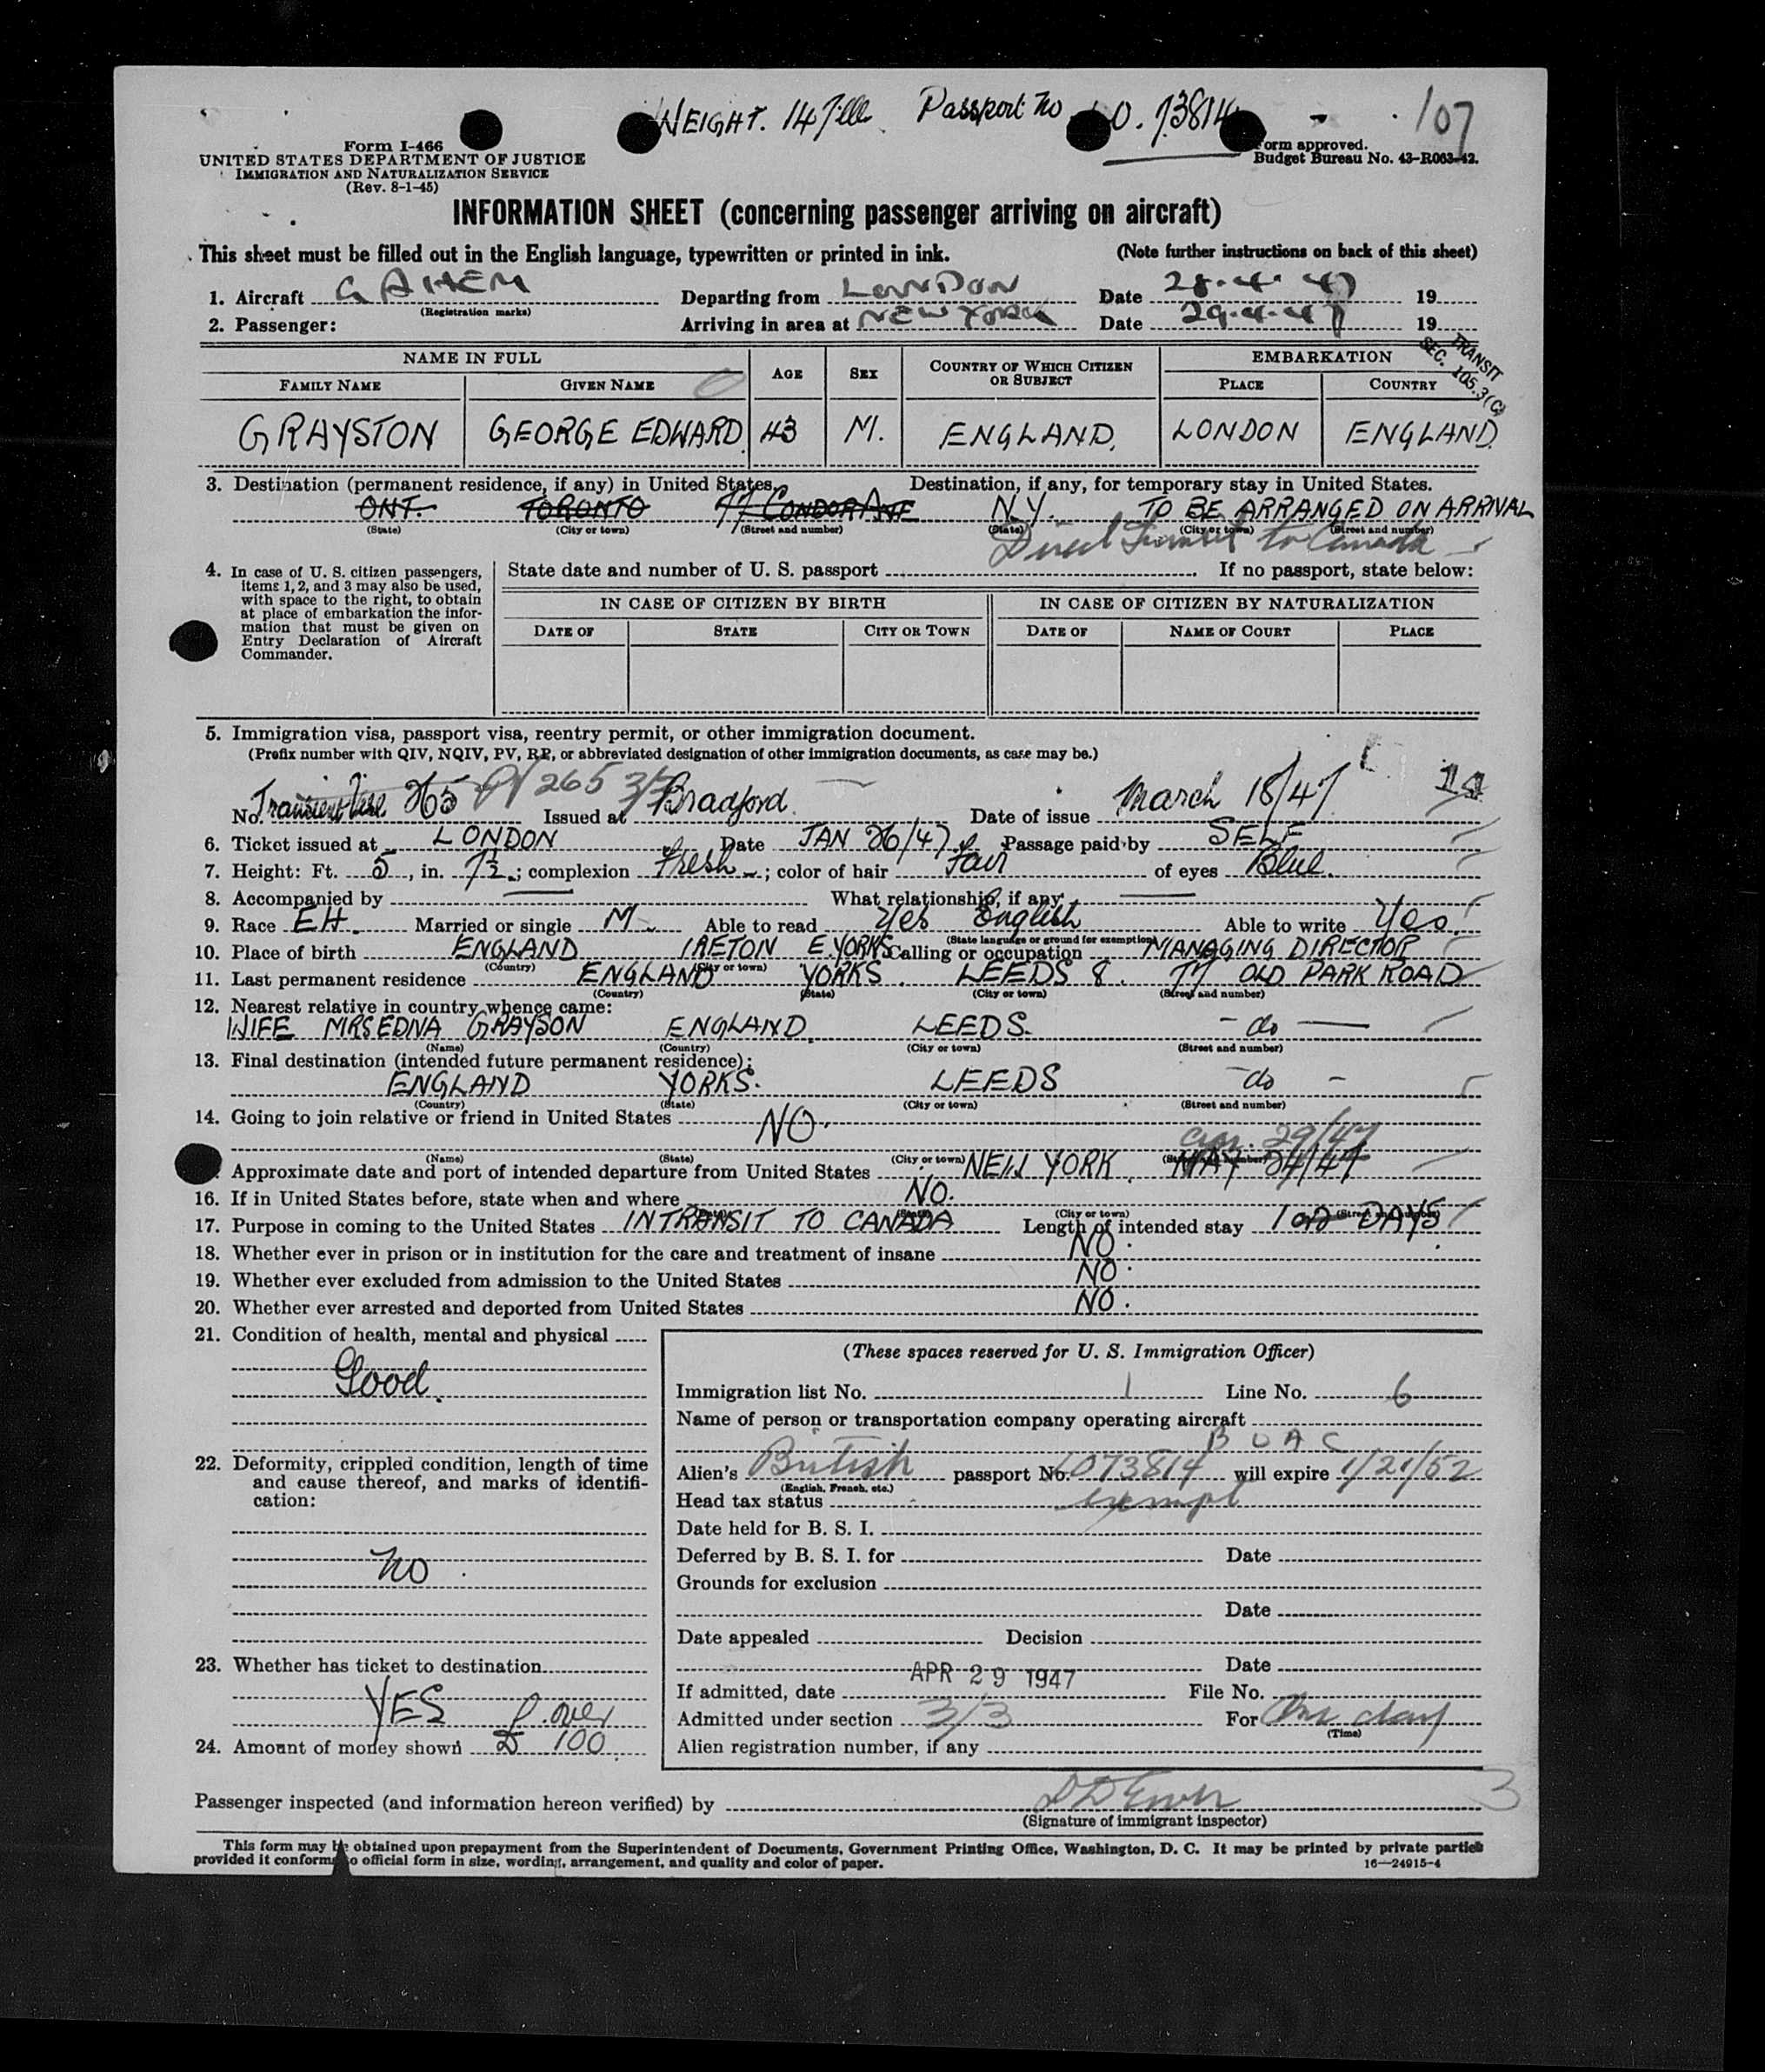 WEIGHT. 14 Passport No 0.73814 107
Form I-466
UNITED STATES DEPARTMENT OF JUSTICE
IMMIGRATION AND NATURALIZATION SERVICE
(Rev. 8-1-45)
orm approved.
Budget Bureau No. 43-R063-42.
INFORMATION SHEET (concerning passenger arriving on aircraft)
This sheet must be filled out in the English language, typewritten or printed in ink. (Note further instructions on back of this sheet)
1. Aircraft G AHEM Departing from LONDON Date 28.4.47 19
(Registration marks)
2. Passenger: Arriving in area at NEW YORK Date 29.4.47 19
TRANSIT
SEC. 105.3(C)
NAME IN FULL AGE SEX COUNTRY OF WHICH CITIZEN OR SUBJECT EMBARKATION
FAMILY NAME GIVEN NAME PLACE COUNTRY
GRAYSTON GEORGE EDWARD 43 M. ENGLAND. LONDON ENGLAND.
3. Destination (permanent residence, if any) in United States. Destination, if any, for temporary stay in United States.
ONT. TORONTO 77 CONDOR AVE N.Y. TO BE ARRANGED ON ARRIVAL
(State) (City or town) (Street and number) (State) (City or town) (Street and number)
Direct Transit to Canada
4. In case of U. S. citizen passengers,
items 1, 2, and 3 may also be used,
with space to the right, to obtain
at place of embarkation the infor-
mation that must be given on
Entry Declaration of Aircraft
Commander.
State date and number of U. S. passport If no passport, state below:
IN CASE OF CITIZEN BY BIRTH IN CASE OF CITIZEN BY NATURALIZATION
DATE OF STATE CITY OR TOWN DATE OF NAME OF COURT PLACE
5. Immigration visa, passport visa, reentry permit, or other immigration document.
(Prefix number with QIV, NQIV, PV, RP, or abbreviated designation of other immigration documents, as case may be.)
No. Transient Visa 265 PV 265 Issued at Bradford. Date of issue March 18/47
6. Ticket issued at LONDON Date JAN 26/47 Passage paid by SELF
7. Height: Ft. 5, in. 7½.; complexion Fresh; color of hair Fair of eyes Blue.
8. Accompanied by What relationship, if any
9. Race EH. Married or single M Able to read Yes English Able to write Yes.
(State language or ground for exemption)
10. Place of birth ENGLAND E. YORKS Calling or occupation MANAGING DIRECTOR
(Country) (City or town)
11. Last permanent residence ENGLAND YORKS. LEEDS 8. 77 OLD PARK ROAD
(Country) (State) (City or town) (Street and number)
12. Nearest relative in country whence came:
WIFE MRS EDNA GRAYSON ENGLAND. LEEDS. - do -
(Name) (Country) (City or town) (Street and number)
13. Final destination (intended future permanent residence):
ENGLAND YORKS. LEEDS - do -
(Country) (State) (City or town) (Street and number)
14. Going to join relative or friend in United States NO.
(Name) (State) (City or town) (Street and number)
Apr. 29/47
Approximate date and port of intended departure from United States NEW YORK. MAY 24/47
16. If in United States before, state when and where NO.
(City or town) (Street and number)
17. Purpose in coming to the United States IN TRANSIT TO CANADA Length of intended stay 1 or 2 DAYS
18. Whether ever in prison or in institution for the care and treatment of insane NO.
19. Whether ever excluded from admission to the United States NO.
20. Whether ever arrested and deported from United States NO.
21. Condition of health, mental and physical
Good.
22. Deformity, crippled condition, length of time
and cause thereof, and marks of identifi-
cation:
No.
23. Whether has ticket to destination
YES
24. Amount of money shown £ 100.
(These spaces reserved for U. S. Immigration Officer)
Immigration list No. 1 Line No. 6
Name of person or transportation company operating aircraft
B O A C
Alien's British passport No. L073814 will expire 1/21/52
(English, French, etc.)
Head tax status exempt
Date held for B. S. I.
Deferred by B. S. I. for Date
Grounds for exclusion
Date
Date appealed Decision
Date
If admitted, date APR 29 1947 File No.
Admitted under section 3/3 For One day
(Time)
Alien registration number, if any
Passenger inspected (and information hereon verified) by
(Signature of immigrant inspector)
3
This form may be obtained upon prepayment from the Superintendent of Documents, Government Printing Office, Washington, D. C. It may be printed by private parties
provided it conforms to official form in size, wording, arrangement, and quality and color of paper. 16—24915-4